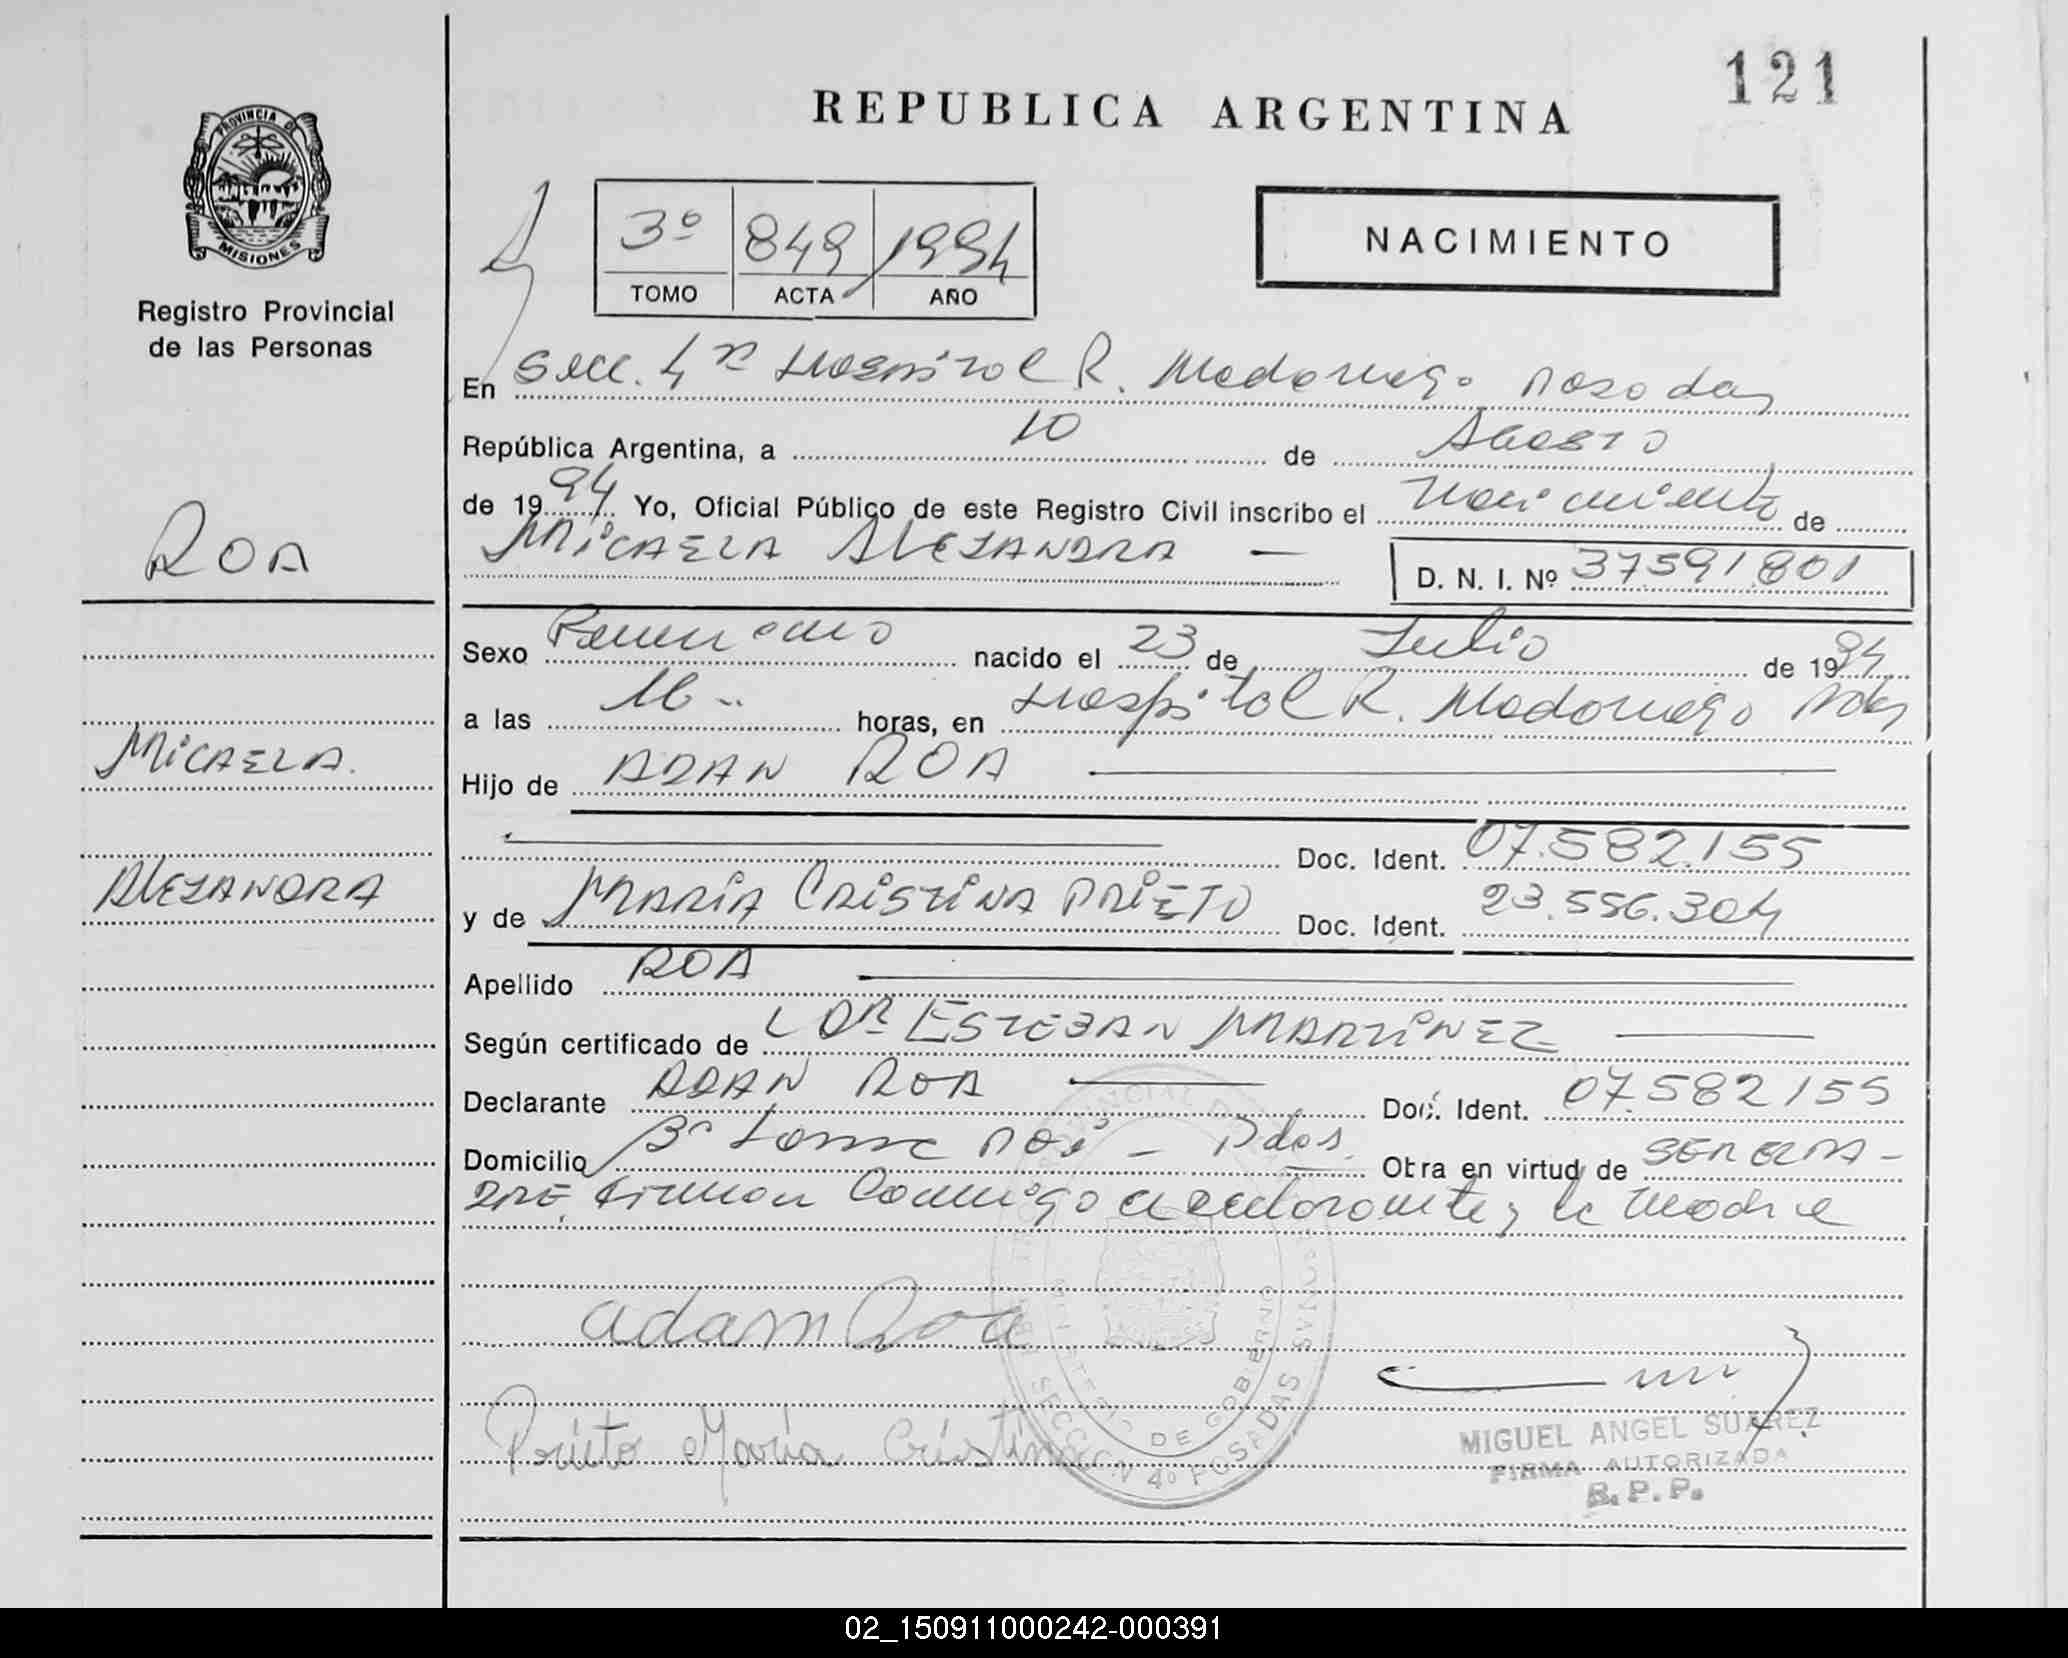 121
REPUBLICA ARGENTINA
PROVINCIA DE
MISIONES
Registro Provincial
de las Personas
3º 849 1994
TOMO ACTA AÑO
NACIMIENTO
En Secc. 4ta Hospital R. Madariaga Posadas
República Argentina, a 10 de Agosto
de 1994 Yo, Oficial Público de este Registro Civil inscribo el Nacimiento de
MICAELA ALEJANDRA — D. N. I. Nº 37.591.801
ROA
Sexo Femenino nacido el 23 de Julio de 1994
a las horas, en Hospital R. Madariaga Pdas
MICAELA.
Hijo de ADAN ROA
Doc. Ident. 07.582.155
ALEJANDRA
y de MARIA CRISTINA PRIETO Doc. Ident. 23.556.304
Apellido ROA
Según certificado de DR ESTEBAN MARTINEZ
Declarante ADAN ROA Doc. Ident. 07.582155
Domicilio Bº Pdas. Otra en virtud de SER EL PA-
DRE. Firman Conmigo el declarante y la madre
adam Roa
Prieto Maria Cristina
DE GOBIERNO
SECCION 4º POSADAS
MIGUEL ANGEL SUAREZ
FIRMA AUTORIZADA
R. P. P.
02_150911000242-000391